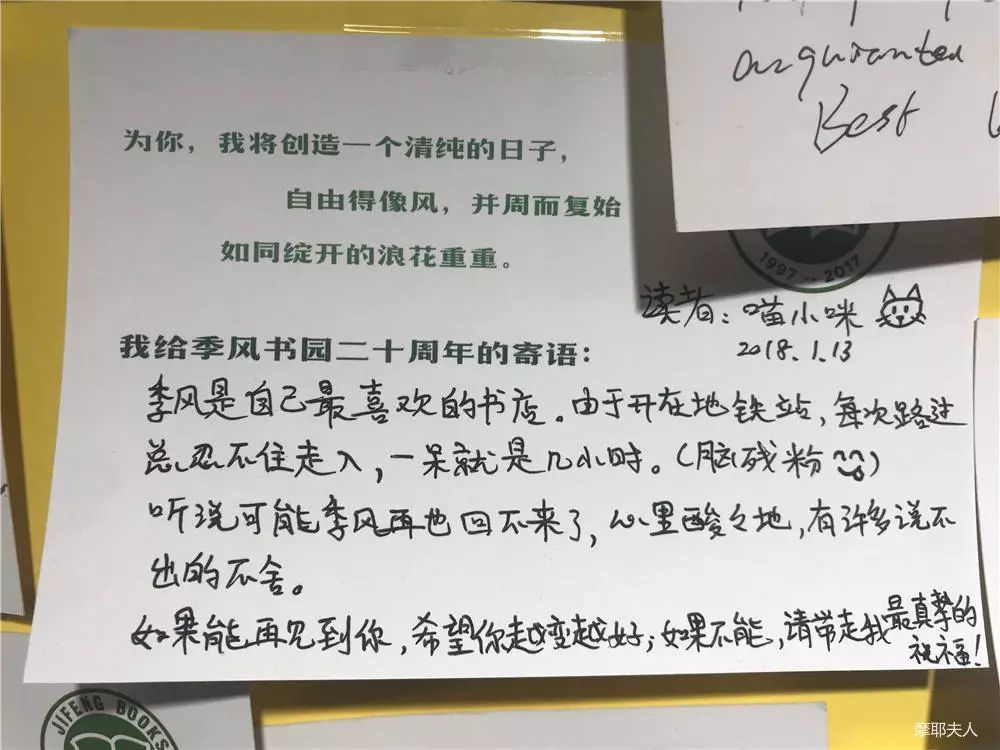 为你，我将创造一个清纯的日子，
自由得像风，并周而复始
如同绽开的浪花重重。
1997-2017
读者：喵小咪
2018.1.13
我给季风书园二十周年的寄语：
季风是自己最喜欢的书店。由于开在地铁站，每次路过
总忍不住走入，一呆就是几小时。（脑残粉）
听说可能季风再也回不来了，心里酸々地，有许多说不
出的不舍。
如果能再见到你，希望你越变越好；如果不能，请带走我最真挚的
祝福！
Best
JIFENG BOOKS
摩耶夫人